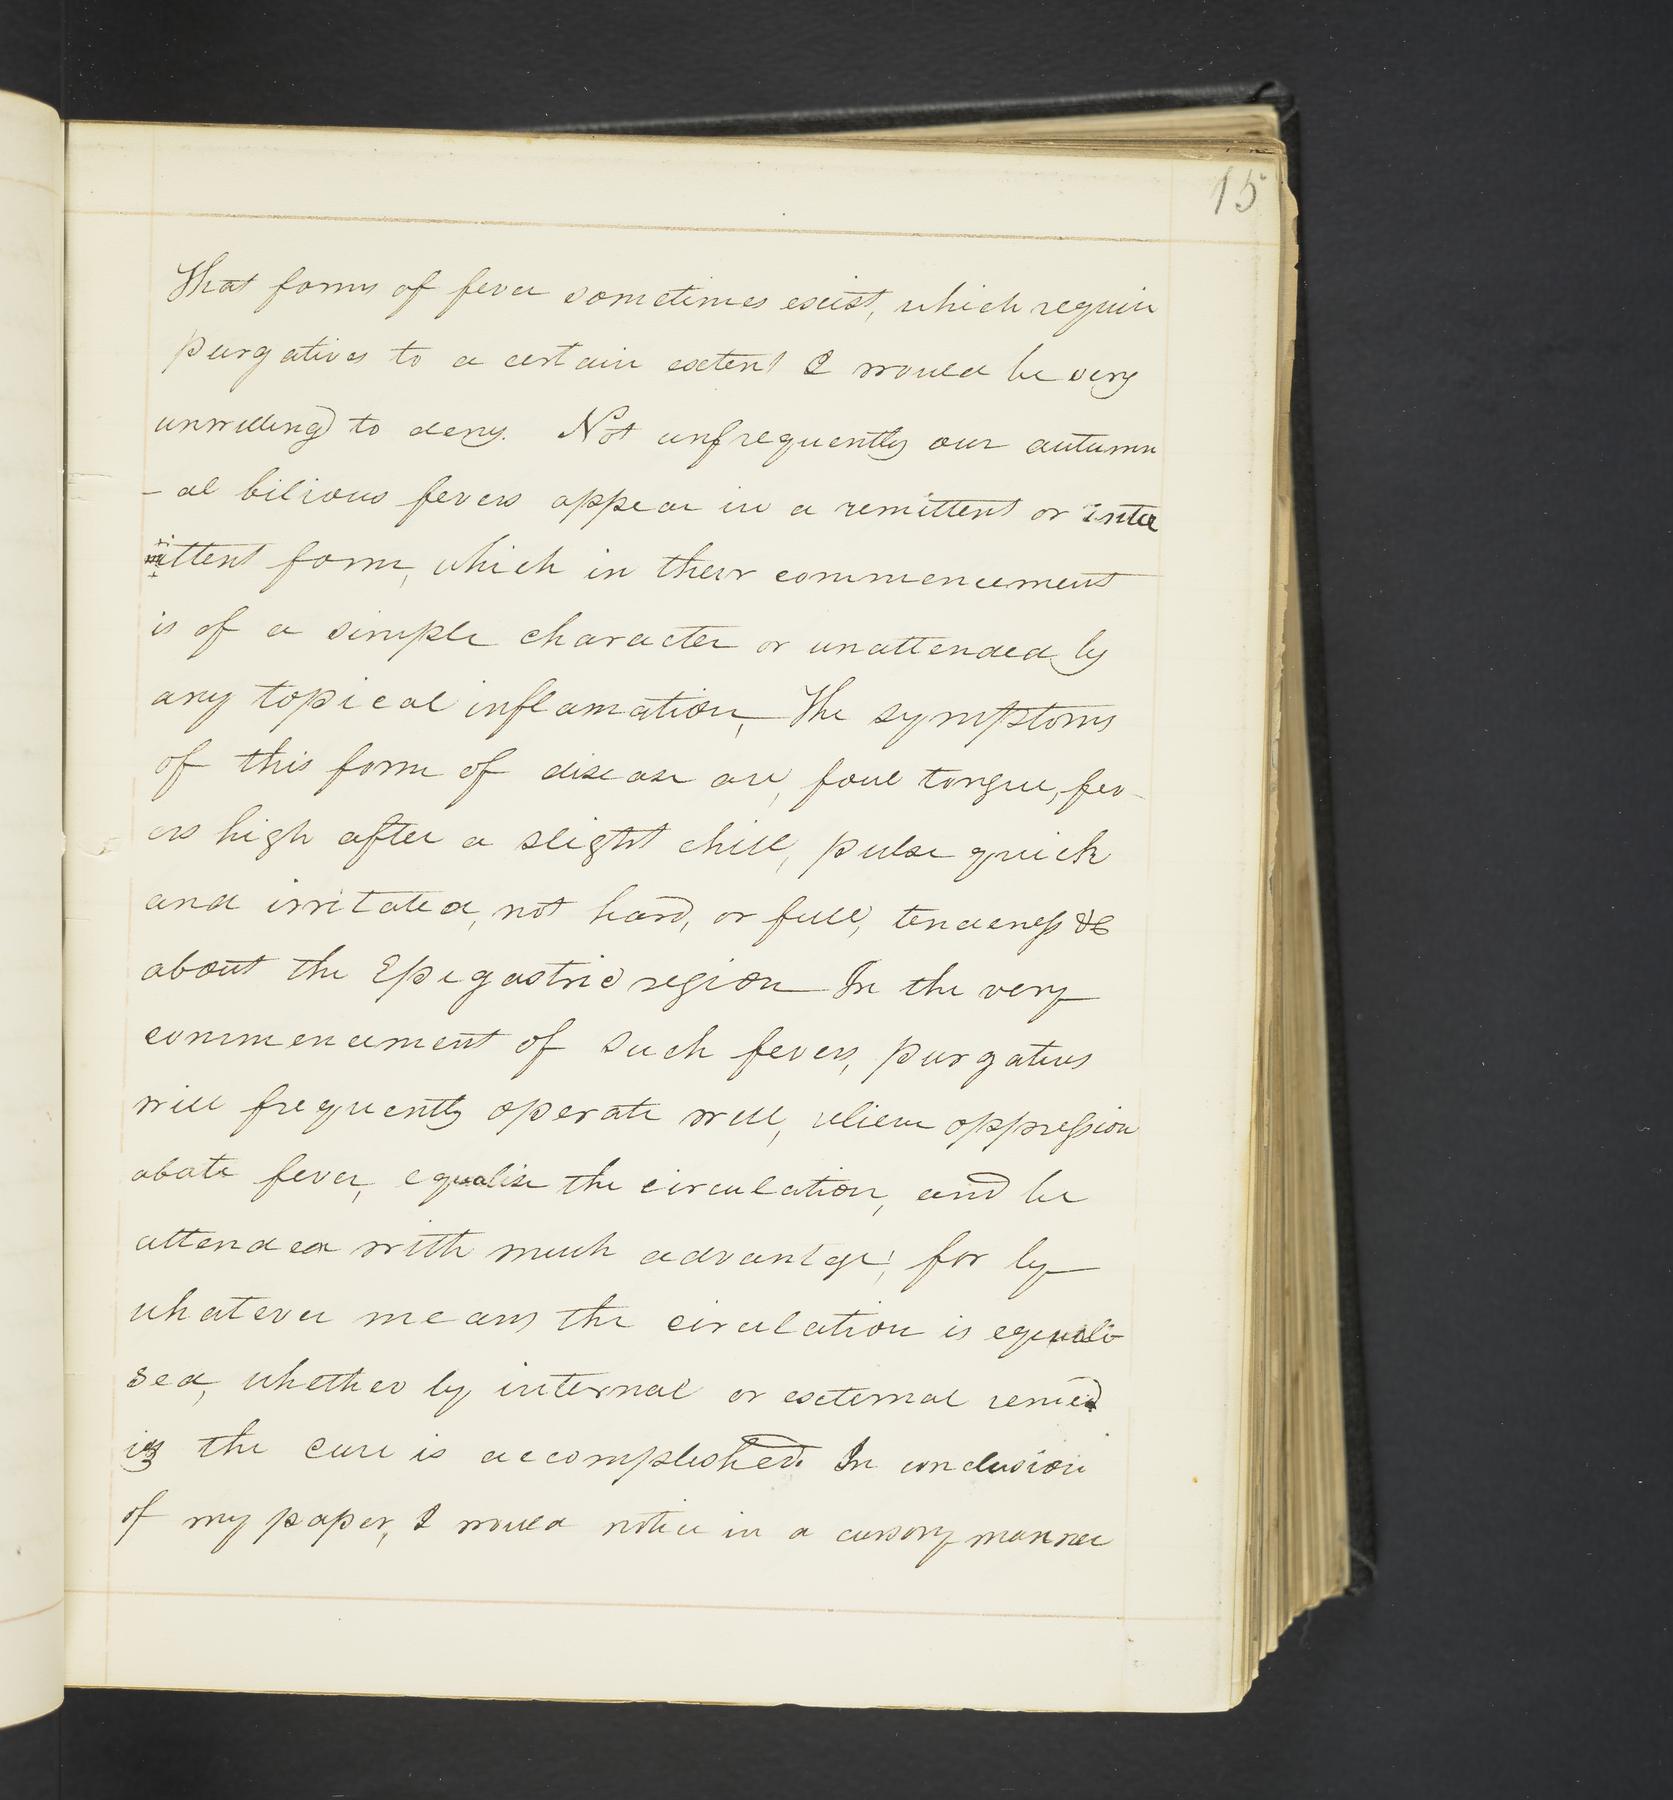 15
That forms of fever sometimes exist, which require
purgatives to a certain extent I would be very
unwilling to deny. Not unfrequently our autumn
- al bilious fevers appear in a remittent or inter
mittent form, which in their commencement
is of a simple character or unattended by
any topical inflamation, The symptoms
of this form of disease are, foul tongue, fev-
ers high after a slight chill, pulse quick
and irritated, not hard, or full, tenderness &c
about the Epigastric region In the very
commencement of such fevers, purgatives
will frequently operate well, relieve oppression
abate fever, equalise the circulation, and be
attended with much advantge, for by
whatever means the circulation is equali
sed, whether by internal or external remed
ies the cure is accomplished. In conclusion
of my paper, I would notice in a cursory manner